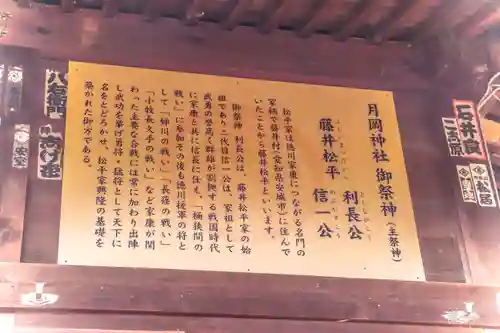 月岡神社 御祭神(主祭神)
ふじいまつだいら としながこう
藤井松平 利長公
のぶかずこう
信一公
松平家は徳川家康につながる名門の
家柄で藤井村(愛知県安城市)に住んで
いたことから藤井松平といいます。
御祭神 利長公は、藤井松平家の始
祖であり二代目信一公は、家祖として
武勇の誉高く群雄が割拠する戦国時代
に家康と共に信長に仕え、「桶狭間の
戦い」に参加その後も徳川後軍の将と
して「姉川の戦い」「長篠の戦い」
「小牧長久手の戦い」など家康が関
わった主要な合戦には常に加わり出陣
し武功を挙げ勇将・猛将として天下に
名をとどろかせ、松平家興隆の基礎を
築かれた御方である。
石井良
八右衛門